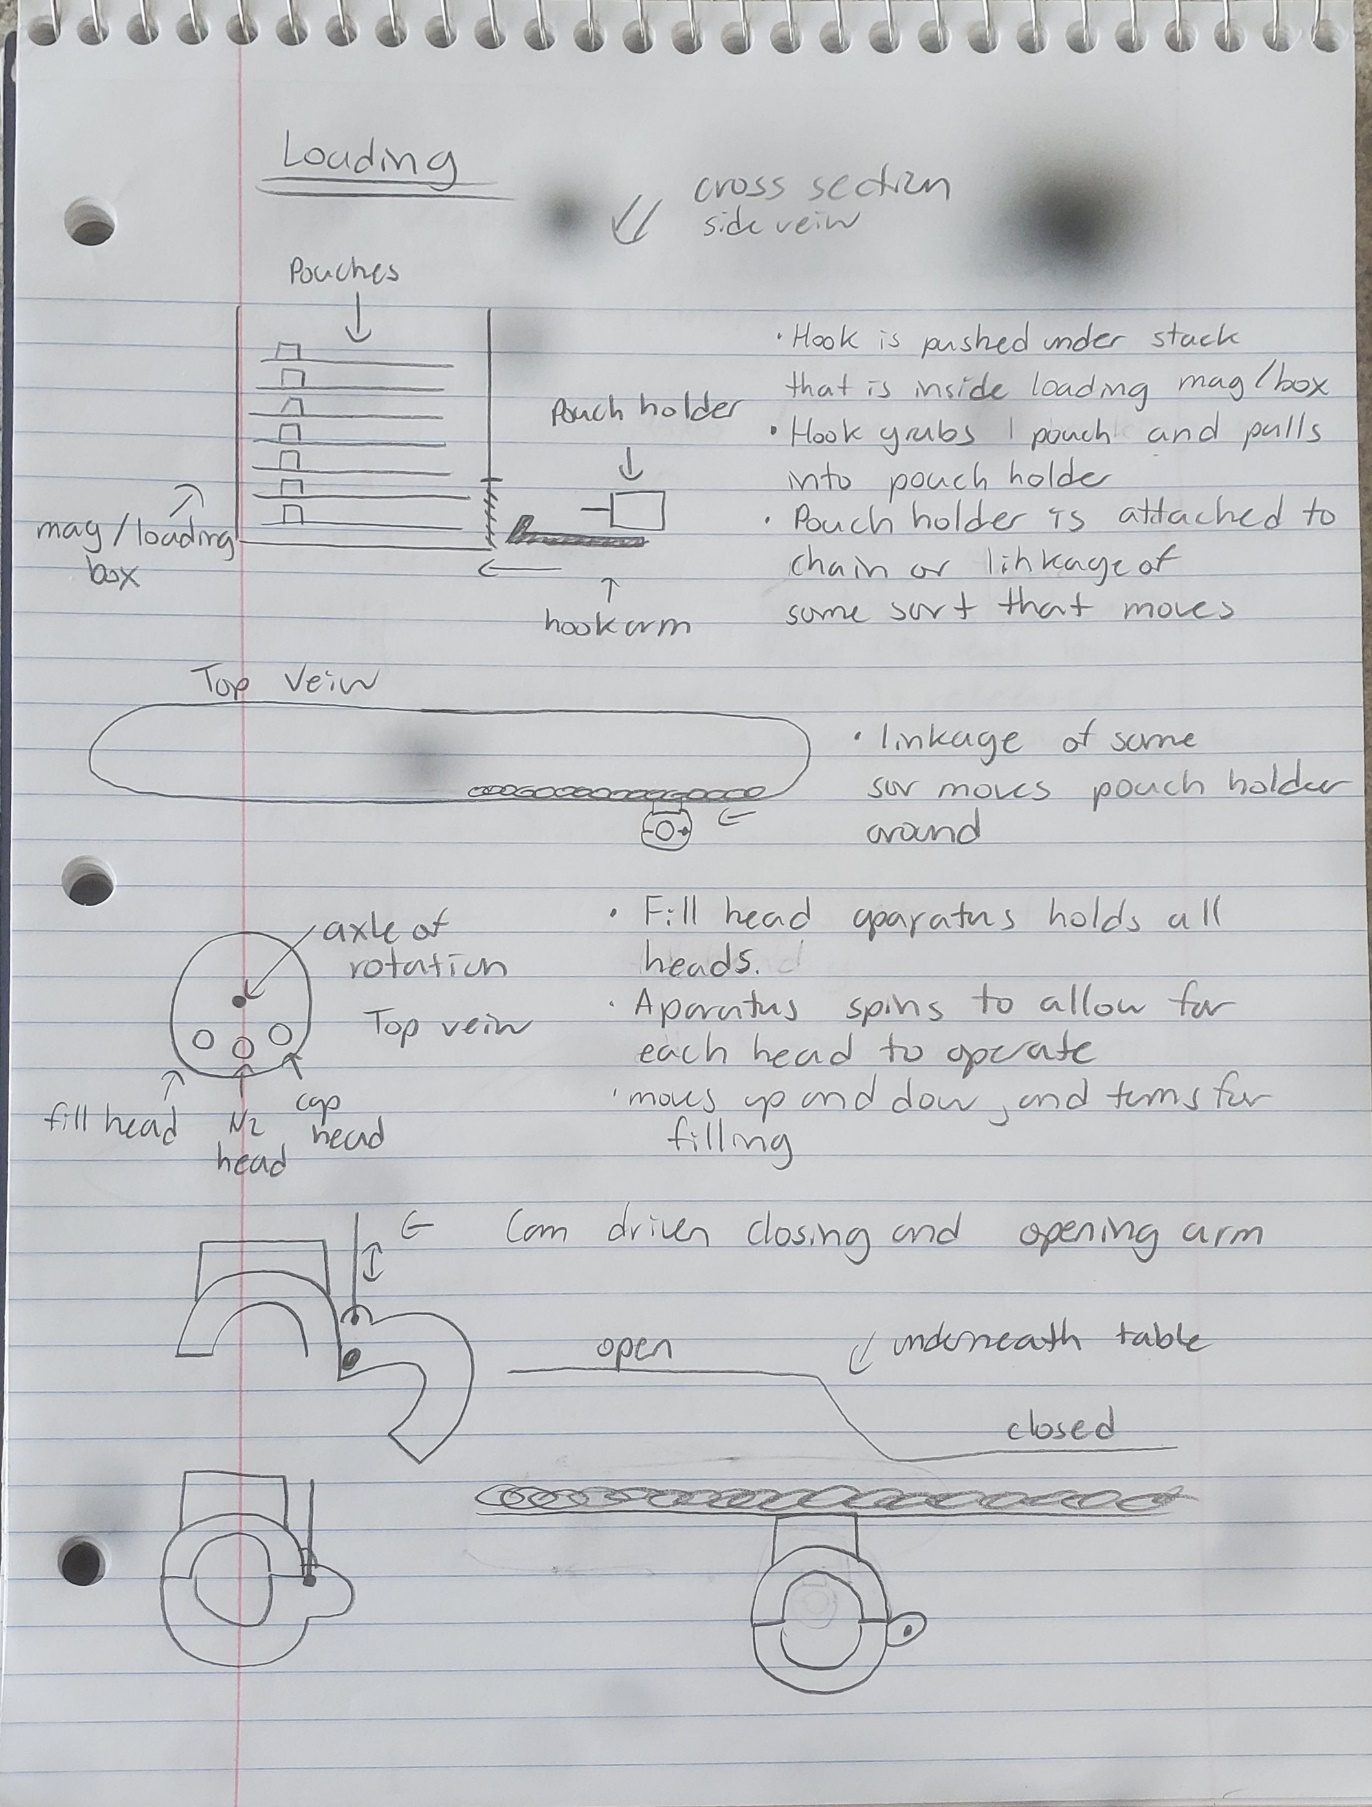 Loading
cross section
side vein
Pouches
mag/loading
box
Pouch holder
hook arm
• Hook is pushed under stack
that is inside loading mag/box
• Hook grabs 1 pouch and pulls
into pouch holder
• Pouch holder is attached to
chain or linkage of
some sort that moves
Top Vein
• linkage of some
sor moves pouch holder
around
axle of
rotation
Top vein
fill head
N2
head
cap
head
• Fill head aparatus holds all
heads.
• Aparatus spins to allow for
each head to operate
• moves up and dow, and turns for
filling
Cam driven closing and opening arm
open
underneath table
closed